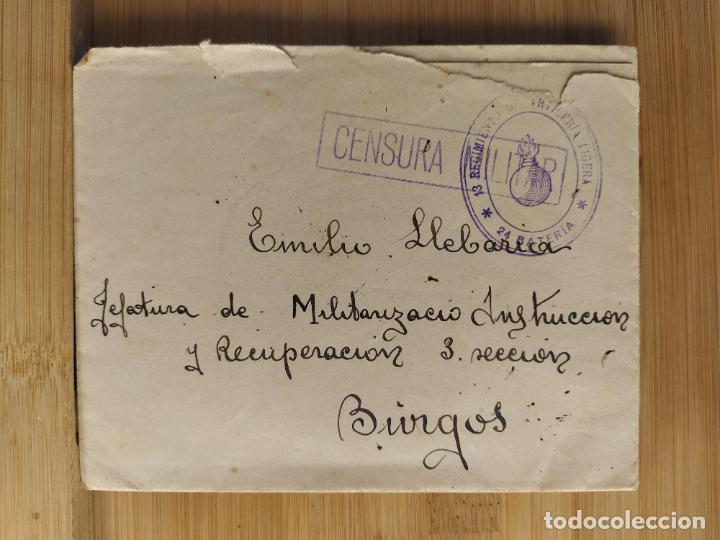 CENSURA MILITAR
13 REGIMIENTO DE ARTILLERIA LIGERA
* 21 BATERIA *
Emilio Llebaria
Jefatura de Militarizacio Instruccion
y Recuperacion 3. seccion
Burgos
todocoleccion.net